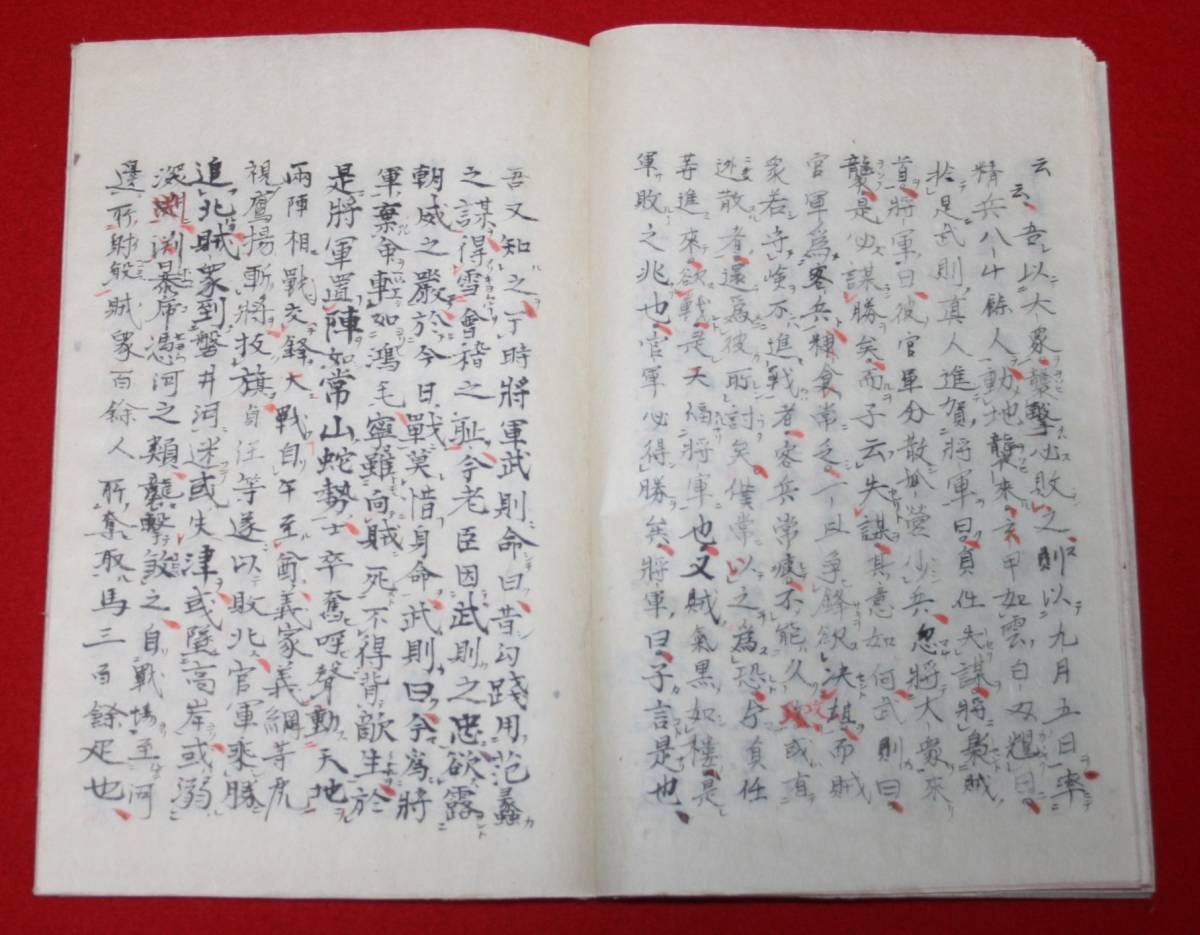 云云吾以大衆襲擊必敗之則以九月五日率
精兵八千餘人動地襲來玄甲如雲白刃耀日
於是武則真人進賀將軍曰貞任失謀將梟賊
首將軍曰彼官軍分散孤營少兵忽將大衆來
襲是必謀勝矣而子云失謀其意如何武則曰
官軍為客兵粮食常乏一旦爭鋒欲決雄而賊
衆若守嶮不進戰者客兵常疲不能久攻或有
逃散者還為彼所討矣僕常以之為恐今貞任
等進來欲戰是天福將軍也又賊氣黑如樓是
軍敗之兆也官軍必得勝矣將軍曰子言是也
吾又知之于時將軍武則命曰昔勾踐用范蠡
之謀得雪會稽之耻今老臣因武則之忠欲露
朝威之嚴於今日戰莫惜身命武則曰今為將
軍棄命輕如鴻毛寧雖向賊死不得背敵生於
是將軍置陣如常山蛇勢士卒奮呼聲動天地
兩陣相戰交鋒大戰自午至酉義家義綱等虎
視鷹揚斬將拔旗自任等遂以敗北官軍乘勝
追北賊衆到磐井河迷或失津或墜高岸或溺
深淵暴虎憑河之類襲擊殺之自戰場至河
邊所射殺賊衆百餘人所奪取馬三百餘疋也